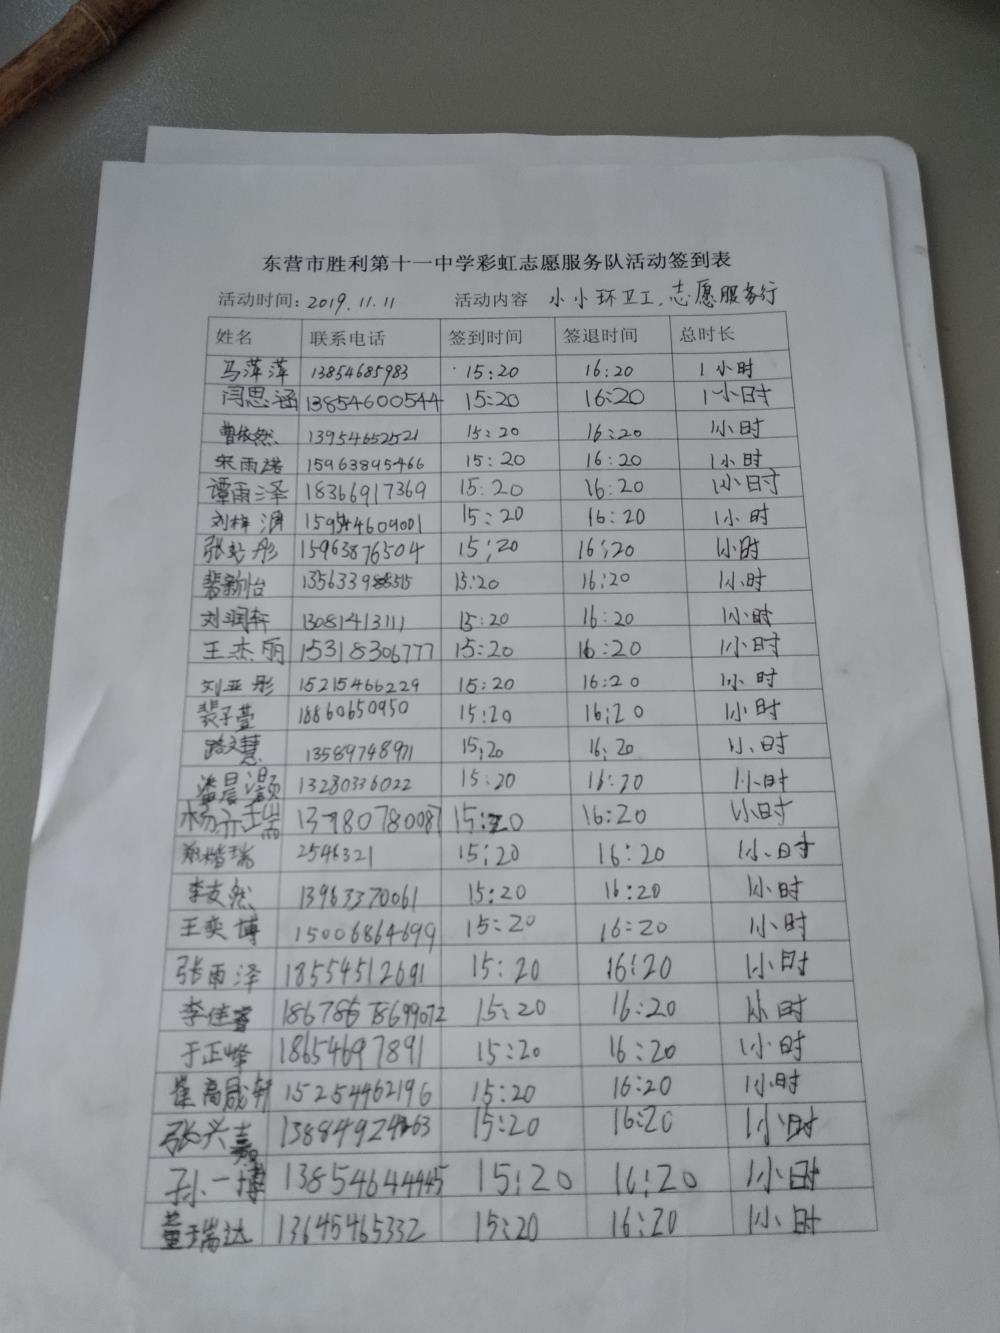 东营市胜利第十一中学彩虹志愿服务队活动签到表
活动时间：2019.11.11 活动内容 小小环卫工，志愿服务行
姓名 联系电话 签到时间 签退时间 总时长
马萍萍 13854685983 15:20 16:20 1小时
闫思涵 13854600544 15:20 16:20 1小时
曹依然 13954652521 15:20 16:20 1小时
宋雨诺 15963895466 15:20 16:20 1小时
谭雨泽 18366917369 15:20 16:20 1小时
刘梓 15:20 16:20 1小时
张 彤 15963876504 15:20 16:20 1小时
裴新怡 15:20 16:20 1小时
刘润轩 13081413111 15:20 16:20 1小时
王杰丽 15318306777 15:20 16:20 1小时
刘亚彤 15215466229 15:20 16:20 1小时
裴子萱 18860650950 15:20 16:20 1小时
路文慧 13589748971 15:20 16:20 1小时
潘晨灏 13280336022 15:20 16:20 1小时
杨亦 15:20 16:20 1小时
郑楷瑞 2546321 15:20 16:20 1小时
李友然 13963370061 15:20 16:20 1小时
王奕博 15006864699 15:20 16:20 1小时
张雨泽 18554512691 15:20 16:20 1小时
李佳睿 15:20 16:20 1小时
于正峰 18654697891 15:20 16:20 1小时
崔高晟轩 15254462196 15:20 16:20 1小时
张兴嘉 15:20 16:20 1小时
孙一博 15:20 16:20 1小时
董瑞达 13645465332 15:20 16:20 1小时